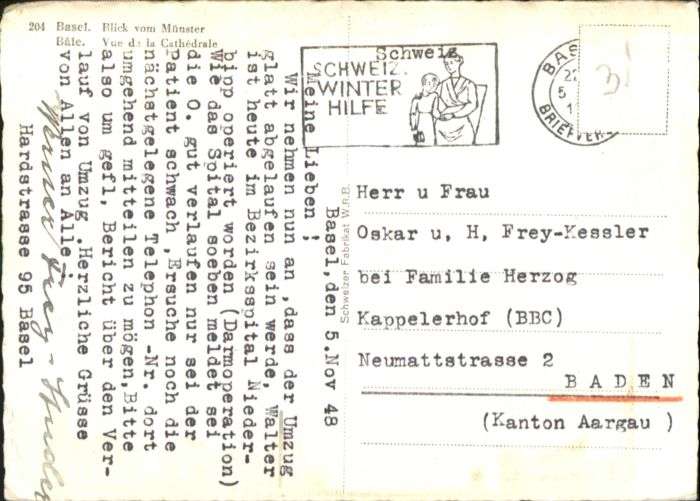 204 Basel. Blick vom Münster
Bâle. Vue de la Cathédrale
Basel,den 5.Nov 48
Meine Lieben ;
Wir nehmen nun an ,dass der Umzug
glatt abgelaufen sein werde, Walter
ist heute im Bezirksspital Nieder-
bipp operiert worden (Darmoperation)
Wie das Spital soeben meldet sei
die O. gut verlaufen nur sei der
Patient schwach ,Ersuche noch die
nächstgelegene Telephon -Nr. dort
umgehend mitteilen zu mögen,Bitte
also um gefl, Bericht über den Ver-
lauf von Umzug ,Herzliche Grüsse
von Allen an Alle
Werner Frey-
Hardstrasse 95 Basel
Schweizer Fabrikat W.R.B.
Schweiz
SCHWEIZ.
WINTER
HILFE
BAS
22
5
1
BRIEFVERS
3
Herr u Frau
Oskar u, H, Frey-Kessler
bei Familie Herzog
Kappelerhof (BBC)
Neumattstrasse 2
B A D E N
(Kanton Aargau )